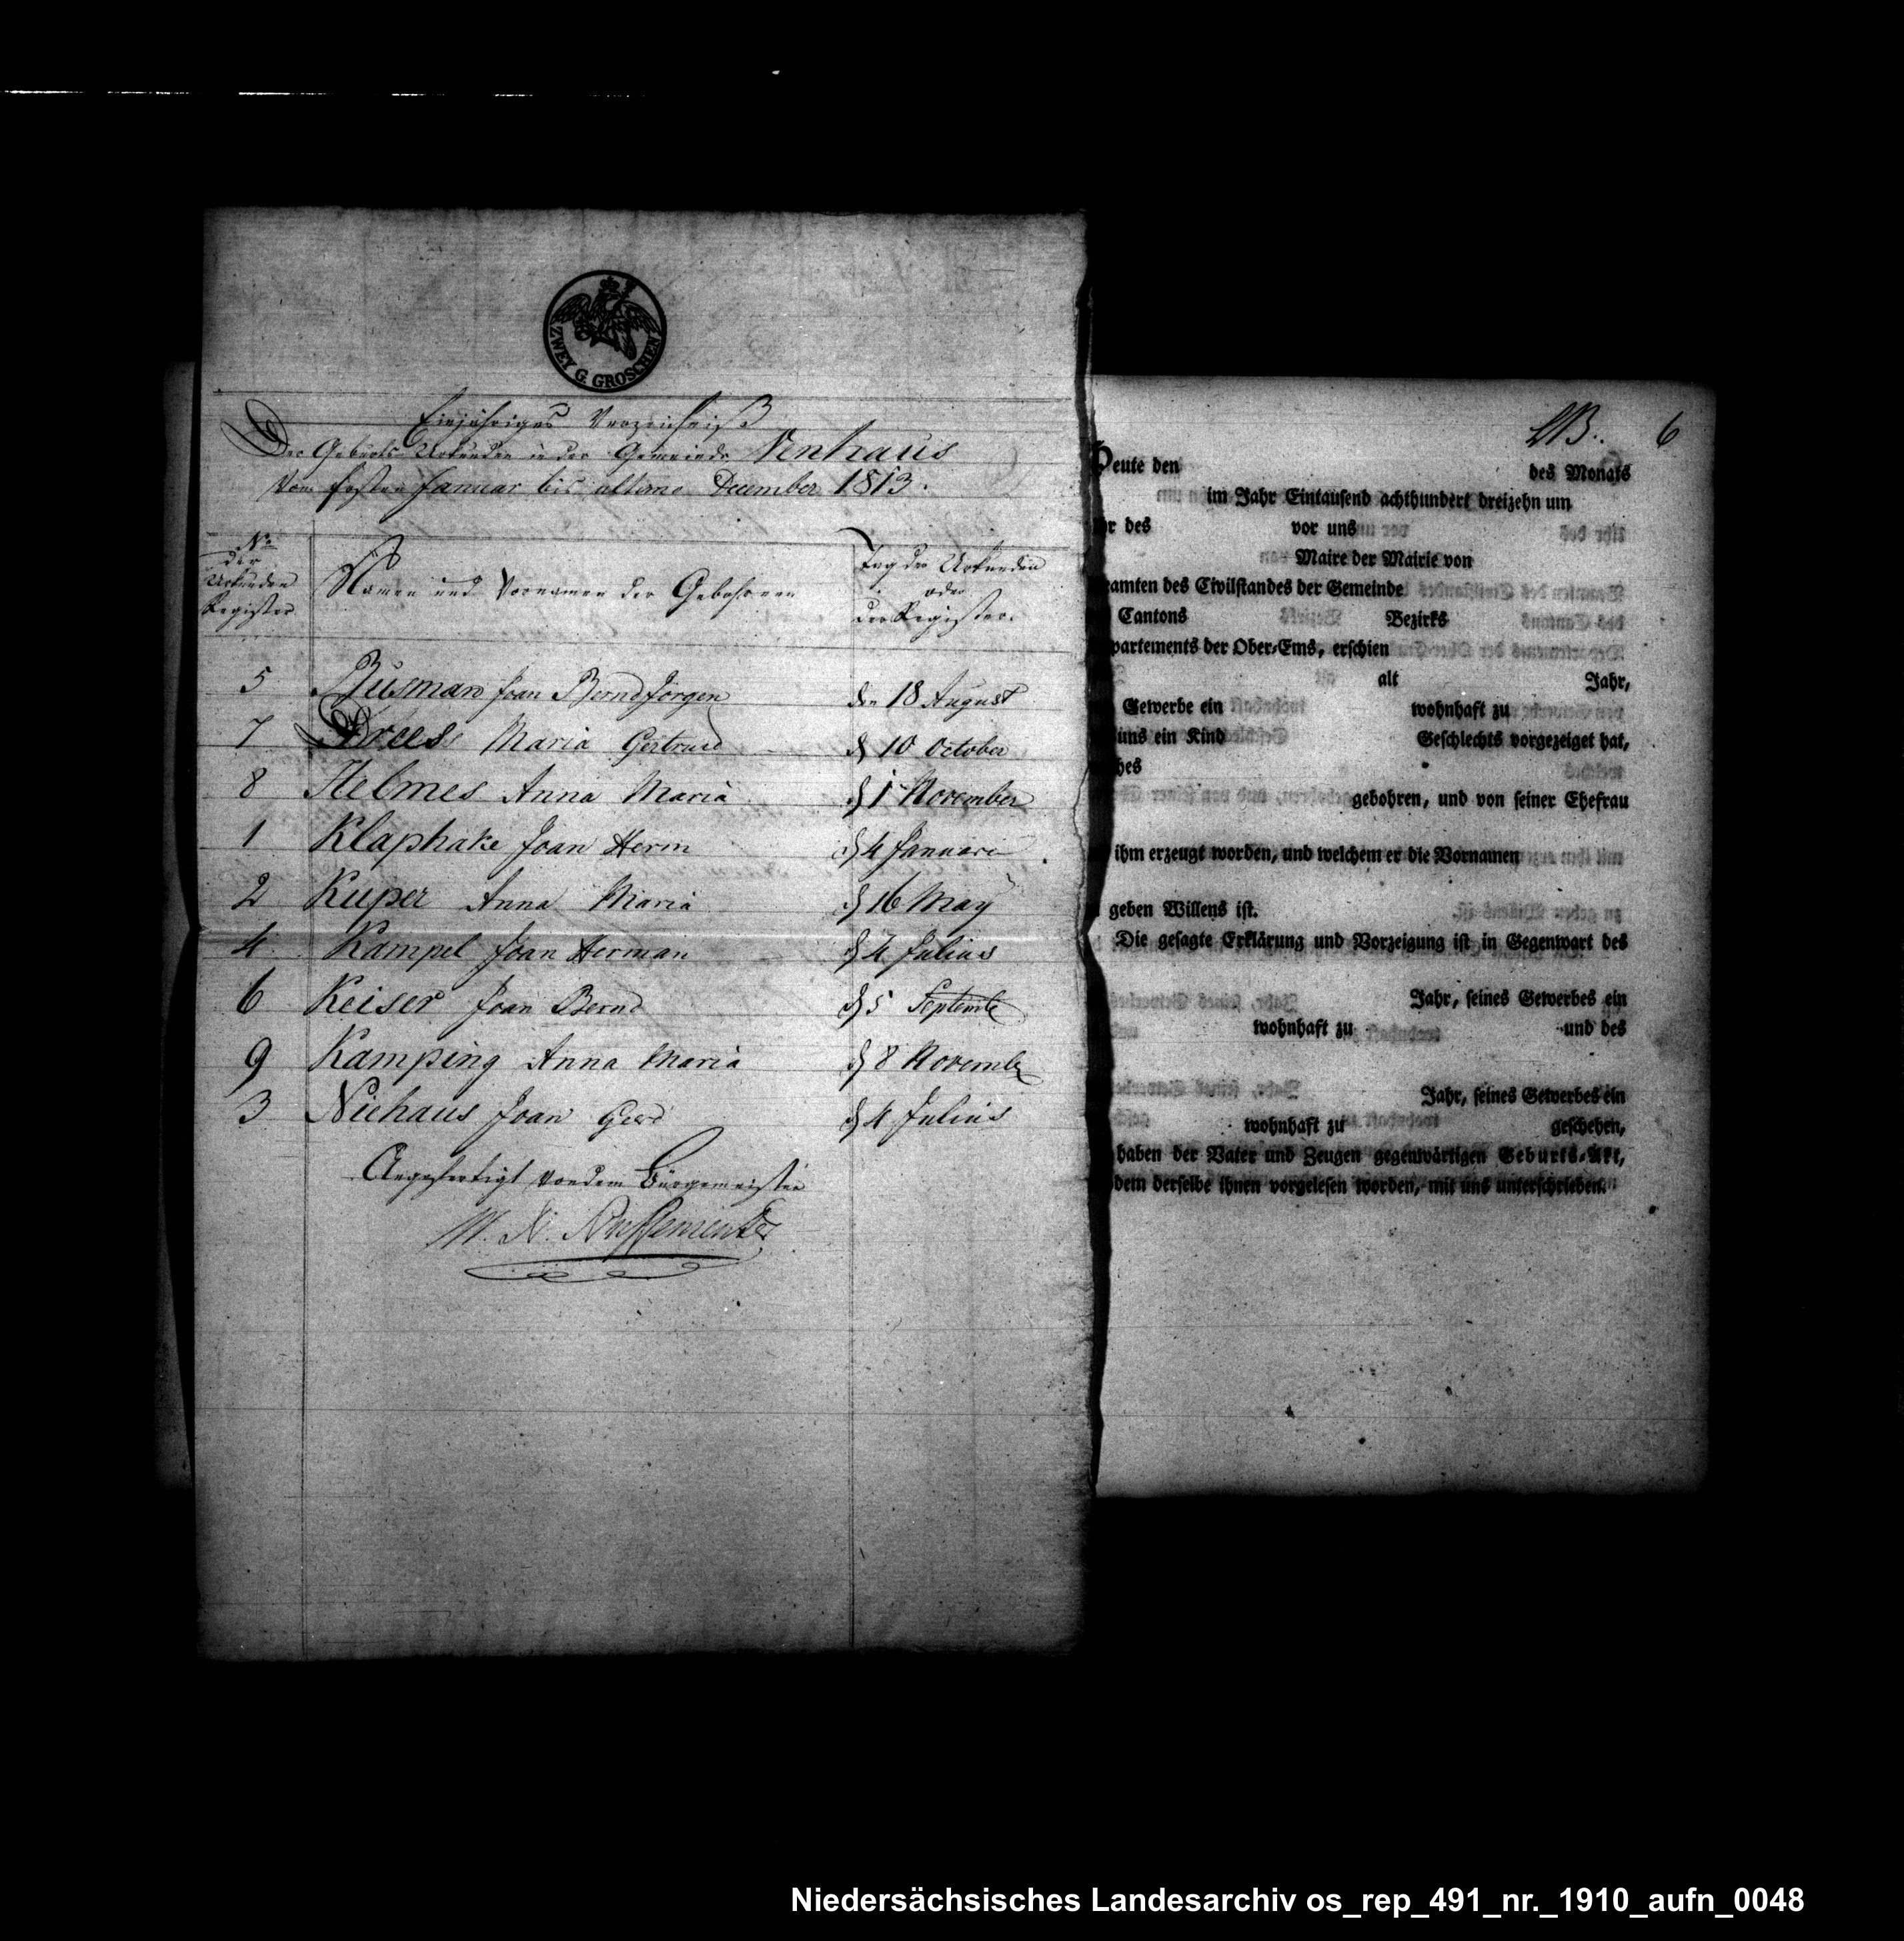 ZWEY G. GROSCHEN
Einjähriges Verzeichniß
Der Geburts Urkunden in der Gemeinde Venhaus
Vom Ersten Januar bis ultimo December 1813.
No
der
Urkunden
Register
Namen und Vornamen der Gebohrnen
Tag der Urkunden
oder
der Register.
5 Busman Joan Bernd Jörgen den 18 August
7 Drees Maria Gertrud d 10 October
8 Helmes Anna Maria d 1 November
1 Klaphake Joan Herm d 4 Januari
2 Kuper Anna Maria d 16 May
4 Kampel Joan Herman d 4 Julius
6 Keiser Joan Bernd d 5 Septemb
9 Kamping Anna Maria d 8 Novemb
3 Niehaus Joan Gerd d 4 Julius
Angefertigt von dem Bürgemeister
6
Heute den des Monats
im Jahr Eintausend achthundert dreizehn um
hr des vor uns
Maire der Mairie von
eamten des Civilstandes der Gemeinde
Cantons Bezirks
partements der Ober-Ems, erschien
alt Jahr,
Gewerbe ein wohnhaft zu
uns ein Kind Geschlechts vorgezeiget hat,
hes
gebohren, und von seiner Ehefrau
ihm erzeugt worden, und welchem er die Vornamen
geben Willens ist.
Die gesagte Erklärung und Vorzeigung ist in Gegenwart des
Jahr, seines Gewerbes ein
wohnhaft zu und des
Jahr, seines Gewerbes ein
wohnhaft zu geschehen,
haben der Vater und Zeugen gegenwärtigen Geburts-Akt,
dem derselbe ihnen vorgelesen worden, mit uns unterschrieben.
Niedersächsisches Landesarchiv os_rep_491_nr._1910_aufn_0048